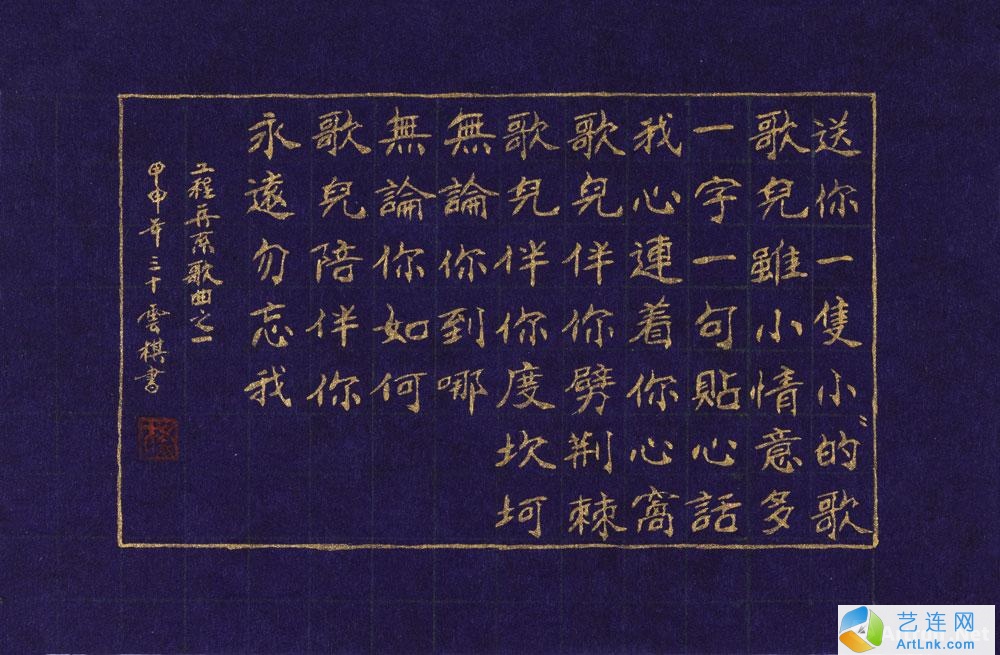 送你一隻小〃的歌
歌兒雖小情意多
一字一句貼心話
我心連着你心窩
歌兒伴你劈荆棘
歌兒伴你度坎坷
無論你到哪
無論你如何
歌兒陪伴你
永遠勿忘我
工程系歌曲之一
甲申年三十雲棋書
艺连网
ArtLnk.com